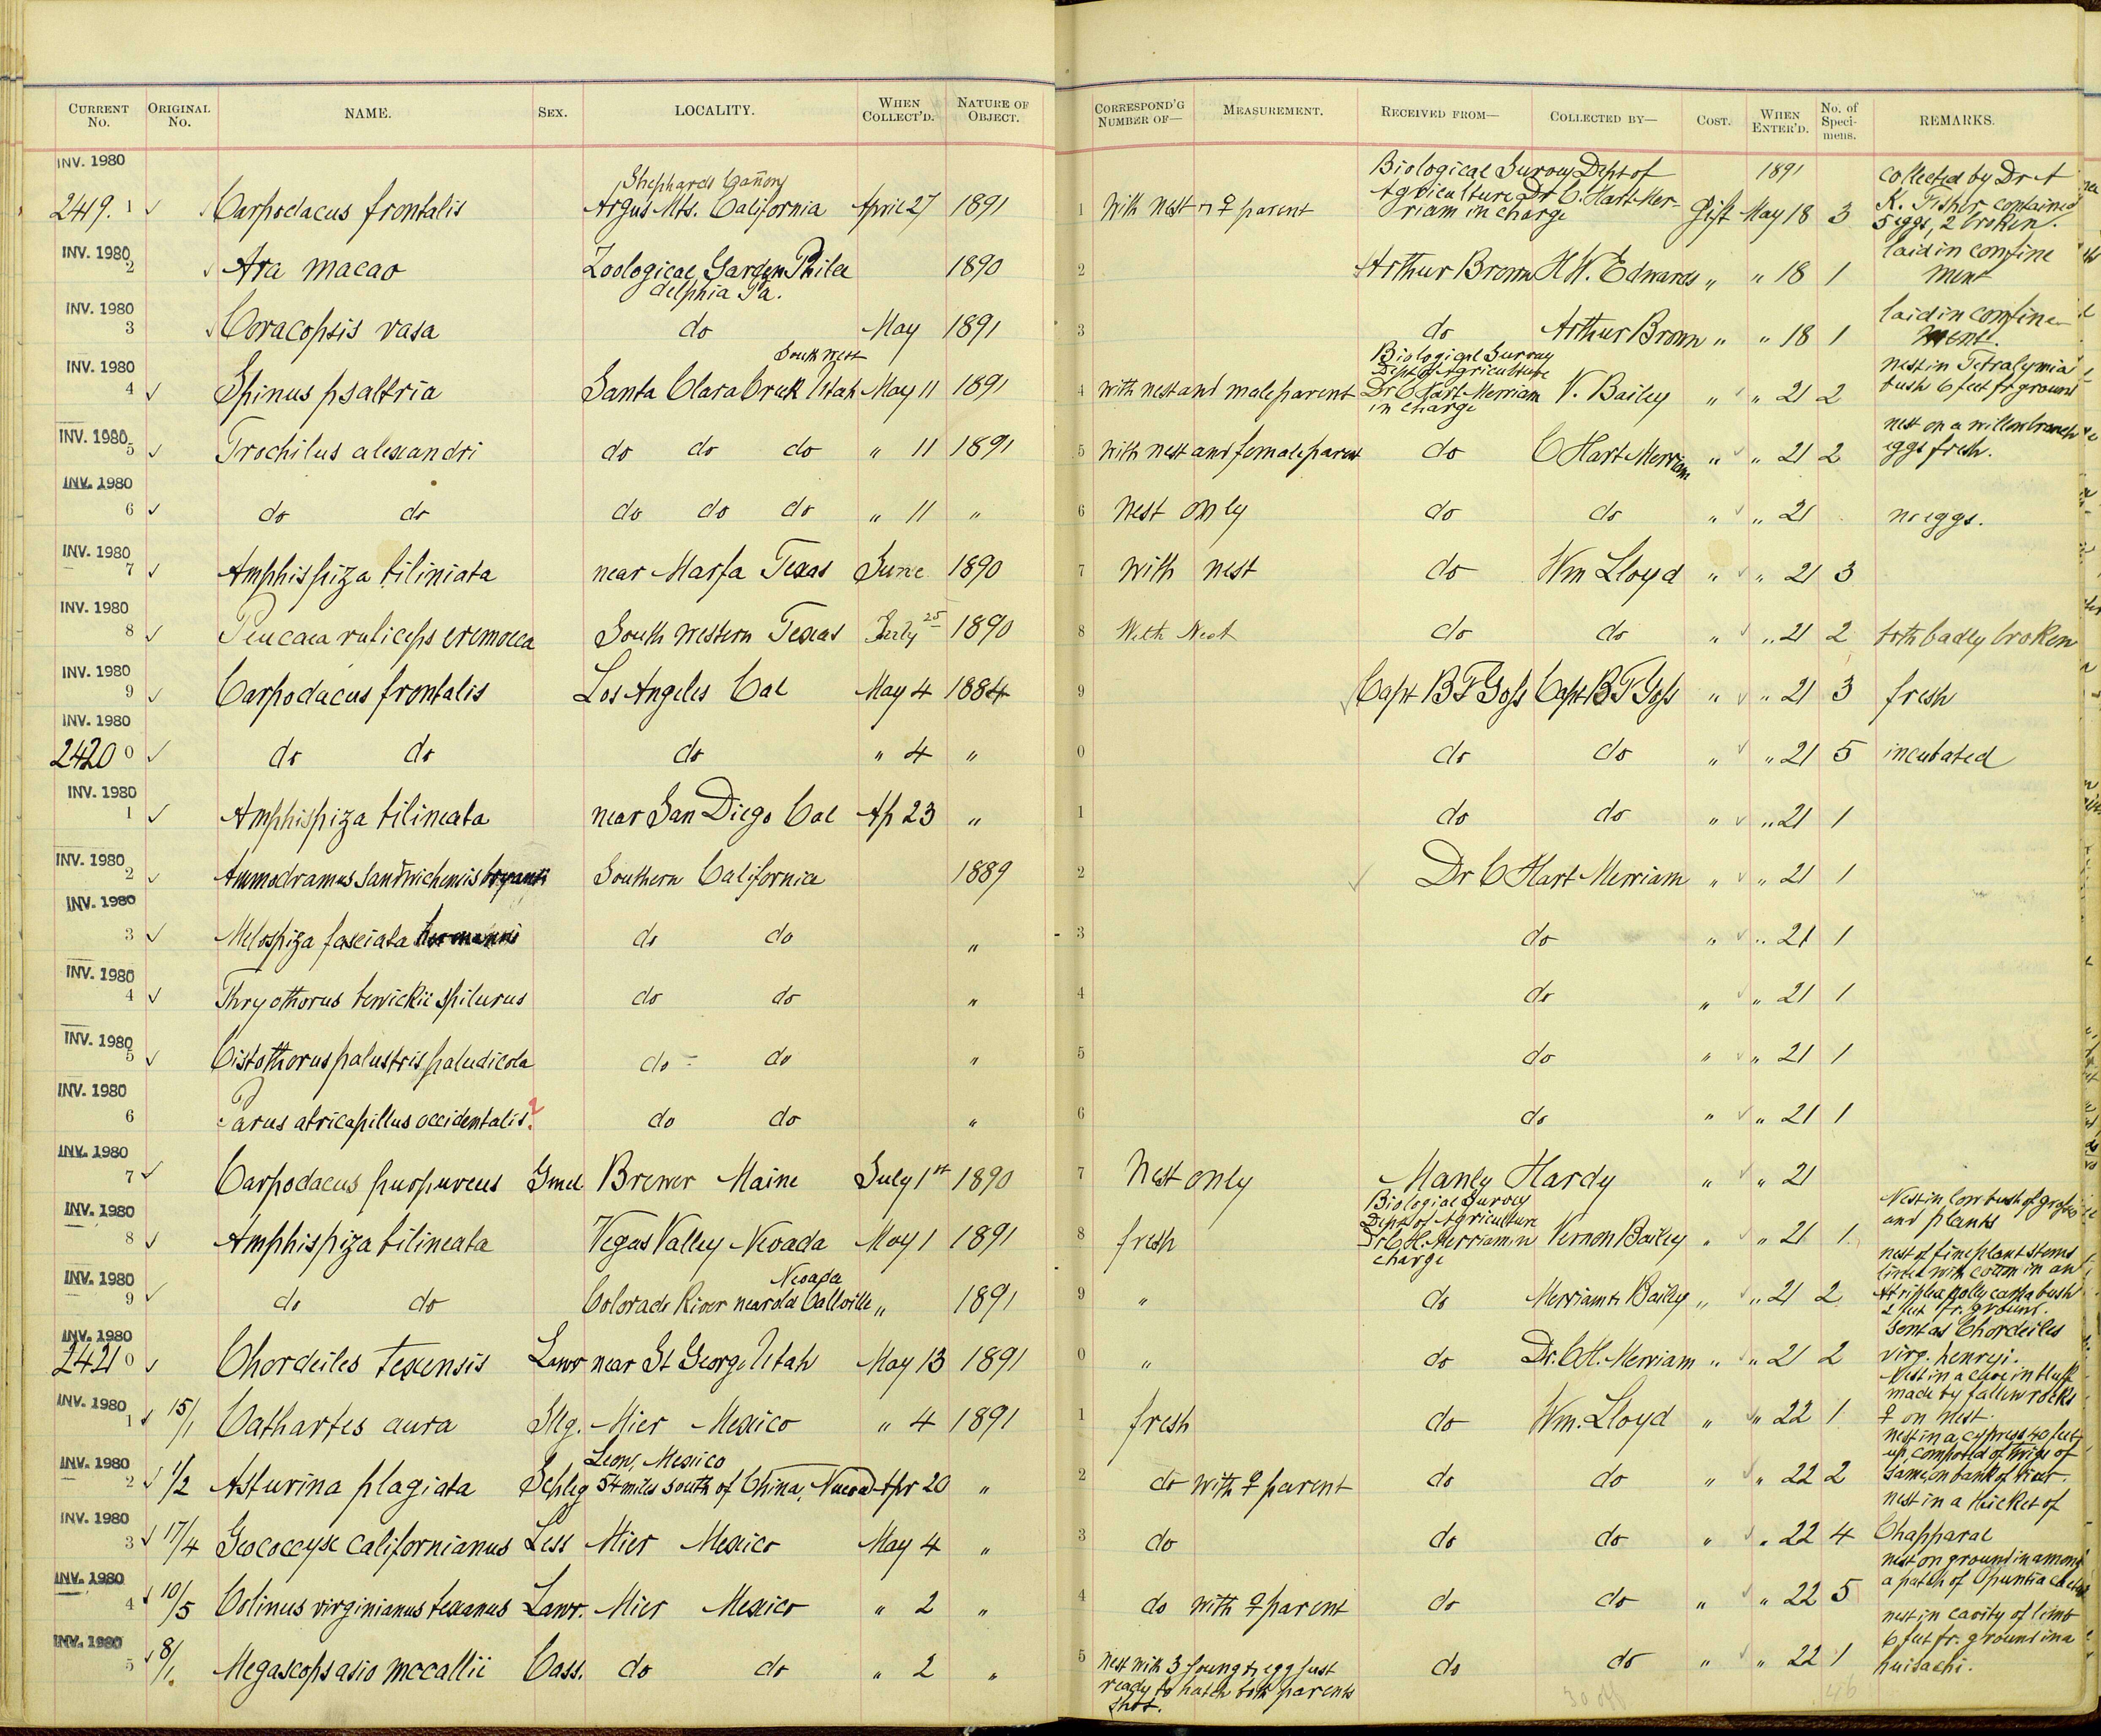 CURRENT No. ORIGINAL No. NAME. SEX. LOCALITY. WHEN COLLECT'D. NATURE OF OBJECT. CORRESPOND'G NUMBER OF— MEASUREMENT. RECEIVED FROM— COLLECTED BY— COST. WHEN ENTER'D. No. of Speci-mens. REMARKS.
INV. 1980
Shephards Cañon Biological Survey Dept of 1891 collected by Dr A
2419. 1 ✓ Carpodacus frontalis Argus Mts. California April 27 1891 1 With nest & ♀ parent Agriculture Dr C. Hart Mer- Gift May 18 3 K. Fisher contained
riam in charge 5 eggs, 2 broken.
INV. 1980
2 ✓ Ara macao Zoological Garden Phila 1890 2 Arthur Brown H.W. Edwards " " 18 1 laid in confine
delphia Pa. ment
INV. 1980
3 ✓ Coracopsis vasa do May 1891 3 do Arthur Brown " " 18 1 laid in confine
ment.
INV. 1980
South West Biological Survey
Dept of Agriculture nest in Tetralymia
4 ✓ Spinus psaltria Santa Clara Creek Utah May 11 1891 4 with nest and male parent Dr C Hart Merriam V. Bailey " ✓ " 21 2 bush 6 feet fr ground
in charge
INV. 1980
nest on a willow branch
5 ✓ Trochilus alexandri do do do " 11 1891 5 with nest and female parent do C Hart Merriam " ✓ " 21 2 eggs fresh.
INV. 1980
6 ✓ do do do do do " 11 " 6 nest only do do " ✓ " 21 no eggs.
INV. 1980
7 ✓ Amphispiza biliniata near Marfa Texas June 1890 7 with nest do Wm Lloyd " ✓ " 21 3
INV. 1980
8 ✓ Peucaea ruficeps eremoeca South western Texas July 25 1890 8 With Nest do do " ✓ " 21 2 both badly broken
INV. 1980
9 ✓ Carpodacus frontalis Los Angeles Cal May 4 1884 9 Capt B F Goss Capt B F Goss " ✓ " 21 3 fresh
INV. 1980
2420 0 ✓ do do do " 4 " 0 do do " ✓ " 21 5 incubated
INV. 1980
1 ✓ Amphispiza bilineata near San Diego Cal Ap 23 " 1 do do " ✓ " 21 1
INV. 1980
2 ✓ Ammodramus sandwichensis bryanti Southern California 1889 2 ✓ Dr C Hart Merriam " ✓ " 21 1
INV. 1980
3 ✓ Melospiza fasciata heermanni do do " 3 do " ✓ " 21 1
INV. 1980
4 ✓ Thryothorus bewickii spilurus do do " 4 do " ✓ " 21 1
INV. 1980
5 ✓ Cistothorus palustris paludicola do do " 5 do " ✓ " 21 1
INV. 1980
6 Parus atricapillus occidentalis ? do do " 6 do " ✓ " 21 1
INV. 1980
7 ✓ Carpodacus purpureus Gmel Brewer Maine July 1st 1890 7 Nest only Manly Hardy " ✓ " 21
INV. 1980
Biological Survey Nest in low bush of
Dept of Agriculture and plants
8 ✓ Amphispiza bilineata Vegas Valley Nevada May 1 1891 8 fresh Dr C.H. Merriam in Vernon Bailey " ✓ " 21 1
charge
INV. 1980
nest of fine plant stems
Nevada lined with cotton in an
9 ✓ do do Colorado River near old Callville " 1891 9 " do Merriam & Bailey " " 21 2 Atriplex polly carpa bush
2 feet fr. ground.
INV. 1980
sent as Chordeiles
2421 0 ✓ Chordeiles texensis Lawr near St George Utah May 13 1891 0 " do Dr. C.H. Merriam " ✓ " 21 2 virg. henryi.
INV. 1980
Nest in a cave in bluff
made by fallen rocks
1 ✓ 15/1 Cathartes aura Illg. Mier Mexico " 4 1891 1 fresh do Wm. Lloyd " ✓ " 22 1 ♀ on nest.
INV. 1980
nest in a cypress 40 feet
Leon, Mexico up, composed of twigs of
2 ✓ 1/2 Asturina plagiata Schleg 54 miles south of China, Nuevo Apr 20 " 2 do with ♀ parent do do " ✓ " 22 2 same, on bank of river.
INV. 1980
nest in a thicket of
3 ✓ 17/4 Geococcyx californianus Less Mier Mexico May 4 " 3 do do do " ✓ " 22 4 Chapparal
INV. 1980
nest on ground in among
a patch of Opuntia cactus
4 ✓ 10/5 Colinus virginianus texanus Lawr. Mier Mexico " 2 " 4 do with ♀ parent do do " ✓ " 22 5
INV. 1980
nest in cavity of limb
6 feet fr. ground in a
5 ✓ 8/1. Megascops asio mccallii Cass. do do " 2 " 5 Nest with 3 young & egg just do do " ✓ " 22 1 huisachi.
ready to hatch both parents
shot.
46